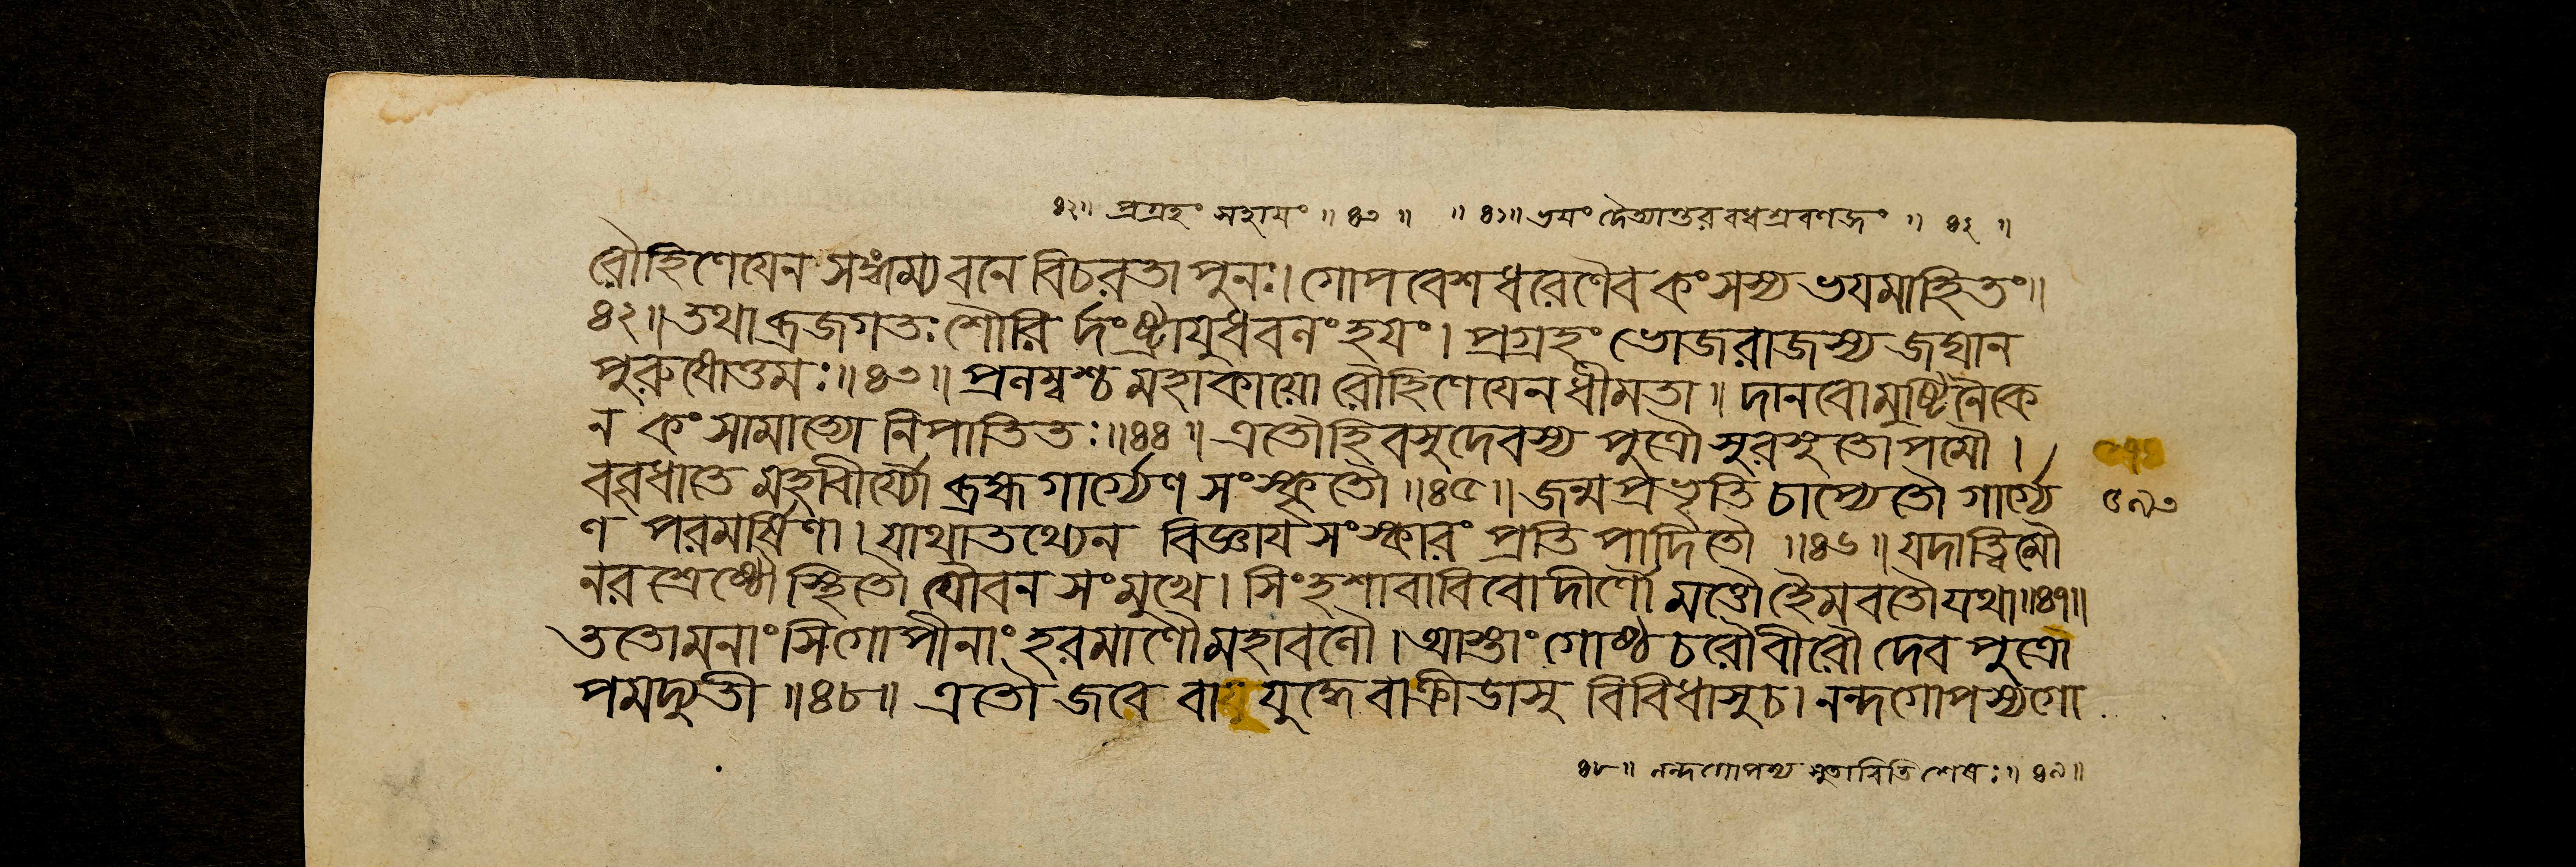 ৪২॥ প্রগ্রহং সহাযং ॥ ৪৩ ॥ ॥ ৪১॥ ভযং দৈত্যাসুরবধশ্রবণজং ॥ ৪২ ॥
রৌহিণেযেন সঙ্গম্য বনে বিচরতা পুনঃ। গোপবেশধরেণৈব কংসস্য ভযমাহিতং॥
৪২॥ তথা ব্রজগতঃ শৌরি র্দংষ্ট্রাযুধবনং হযং। প্রগ্রহং ভোজরাজস্য জঘান
পুরুষোত্তমঃ॥৪৩॥ প্রলম্বশ্চ মহাকাযো রৌহিণেযেন ধীমতা॥ দানবো মুষ্টিনৈকে
ন কংসামাত্যো নিপাতিতঃ॥৪৪॥ এতৌ হি বসুদেবস্য পুত্রৌ সুরসুতোপমৌ।
ববৃধাতে মহাবীর্য্যৌ ব্রহ্মগার্গ্যেণ সংস্কৃতৌ॥৪৫॥ জন্মপ্রভৃতি চাপ্যেতৌ গার্গ্যে
৫৯৩
ণ পরমর্ষিণা। যাথাতথ্যেন বিজ্ঞায সংস্কারং প্রতিপাদিতৌ ॥৪৬॥ যদা ত্বিমৌ
নরশ্রেষ্ঠৌ স্থিতৌ যৌবনসংমুখে। সিংহশাবাবিবোদীর্ণৌ মত্তৌ হৈমবতৌ যথা॥৪৭॥
ততো মনাংসি গোপীনাং হরমাণৌ মহাবলৌ। আস্তাং গোষ্ঠচরৌ বীরৌ দেবপুত্রো
পমদ্যুতী ॥৪৮॥ এতৌ জবে বা যুদ্ধে বা ক্রীডাসু বিবিধাসু চ। নন্দগোপস্য গো
৪৮॥ নন্দগোপস্য সুতাবিতি শেষঃ॥ ৪৯॥